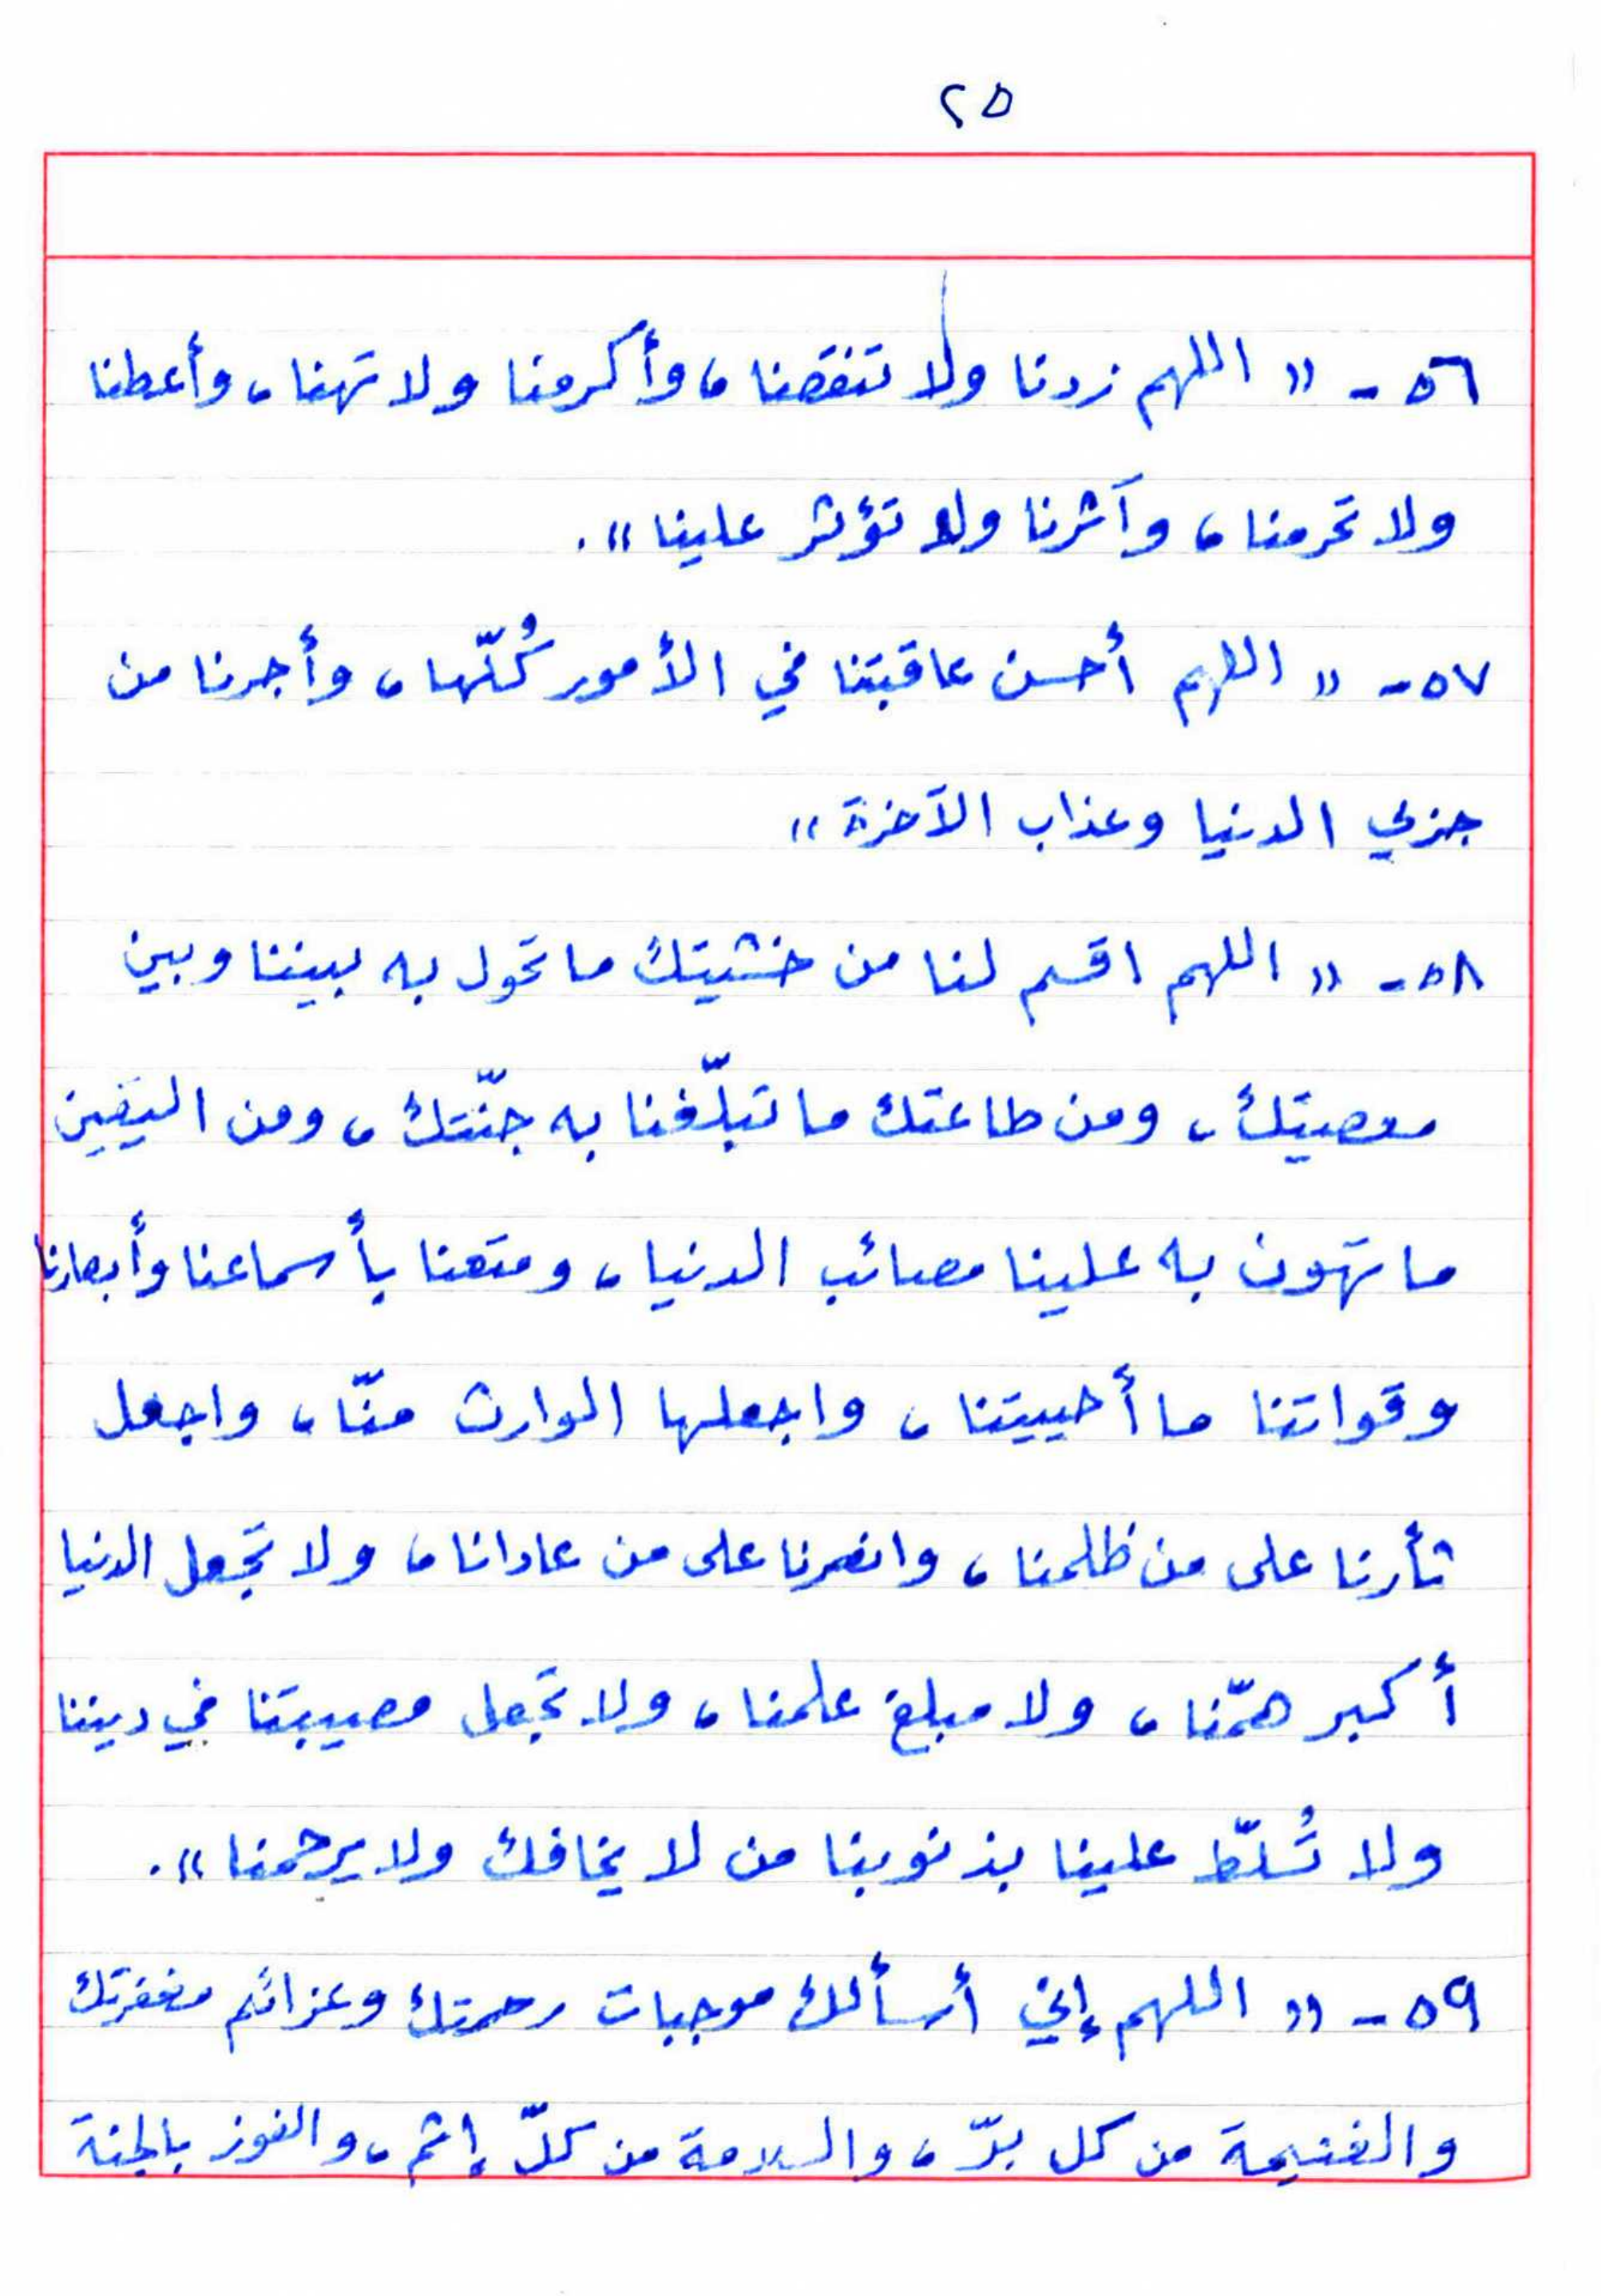 ٢٥
٥٦ - « اللهم زدنا ولا تنقصنا، وأكرمنا ولا تهنا، وأعطنا
ولا تحرمنا، وآثرنا ولا تؤثر علينا ».
٥٧ - « اللهم أحسن عاقبتنا في الأمور كُلّها، وأجرنا من
جزي الدنيا وعذاب الآخرة »
٥٨ - « اللهم اقسم لنا من خشيتك ما تحول به بيننا وبين
معصيتك، ومن طاعتك ما تبلّغنا به جنّتك، ومن اليقين
ما تهون به علينا مصائب الدنيا، ومتعنا بأسماعنا وأبصارنا
وقواتنا ما أحييتنا، واجعلها الوارث منّا، واجعل
ثأرنا على من ظلمنا، وانصرنا على من عادانا، ولا تجعل الدنيا
أكبر همّنا، ولا مبلغ علمنا، ولا تجعل مصيبتنا في ديننا
ولا تُسلّط علينا بذنوبنا من لا يخافك ولا يرحمنا ».
٥٩ - « اللهم إني أسألك موجبات رحمتك وعزائم مغفرتك
والغنيمة من كل برّ، والسلامة من كلّ إثم، والفوز بالجنة